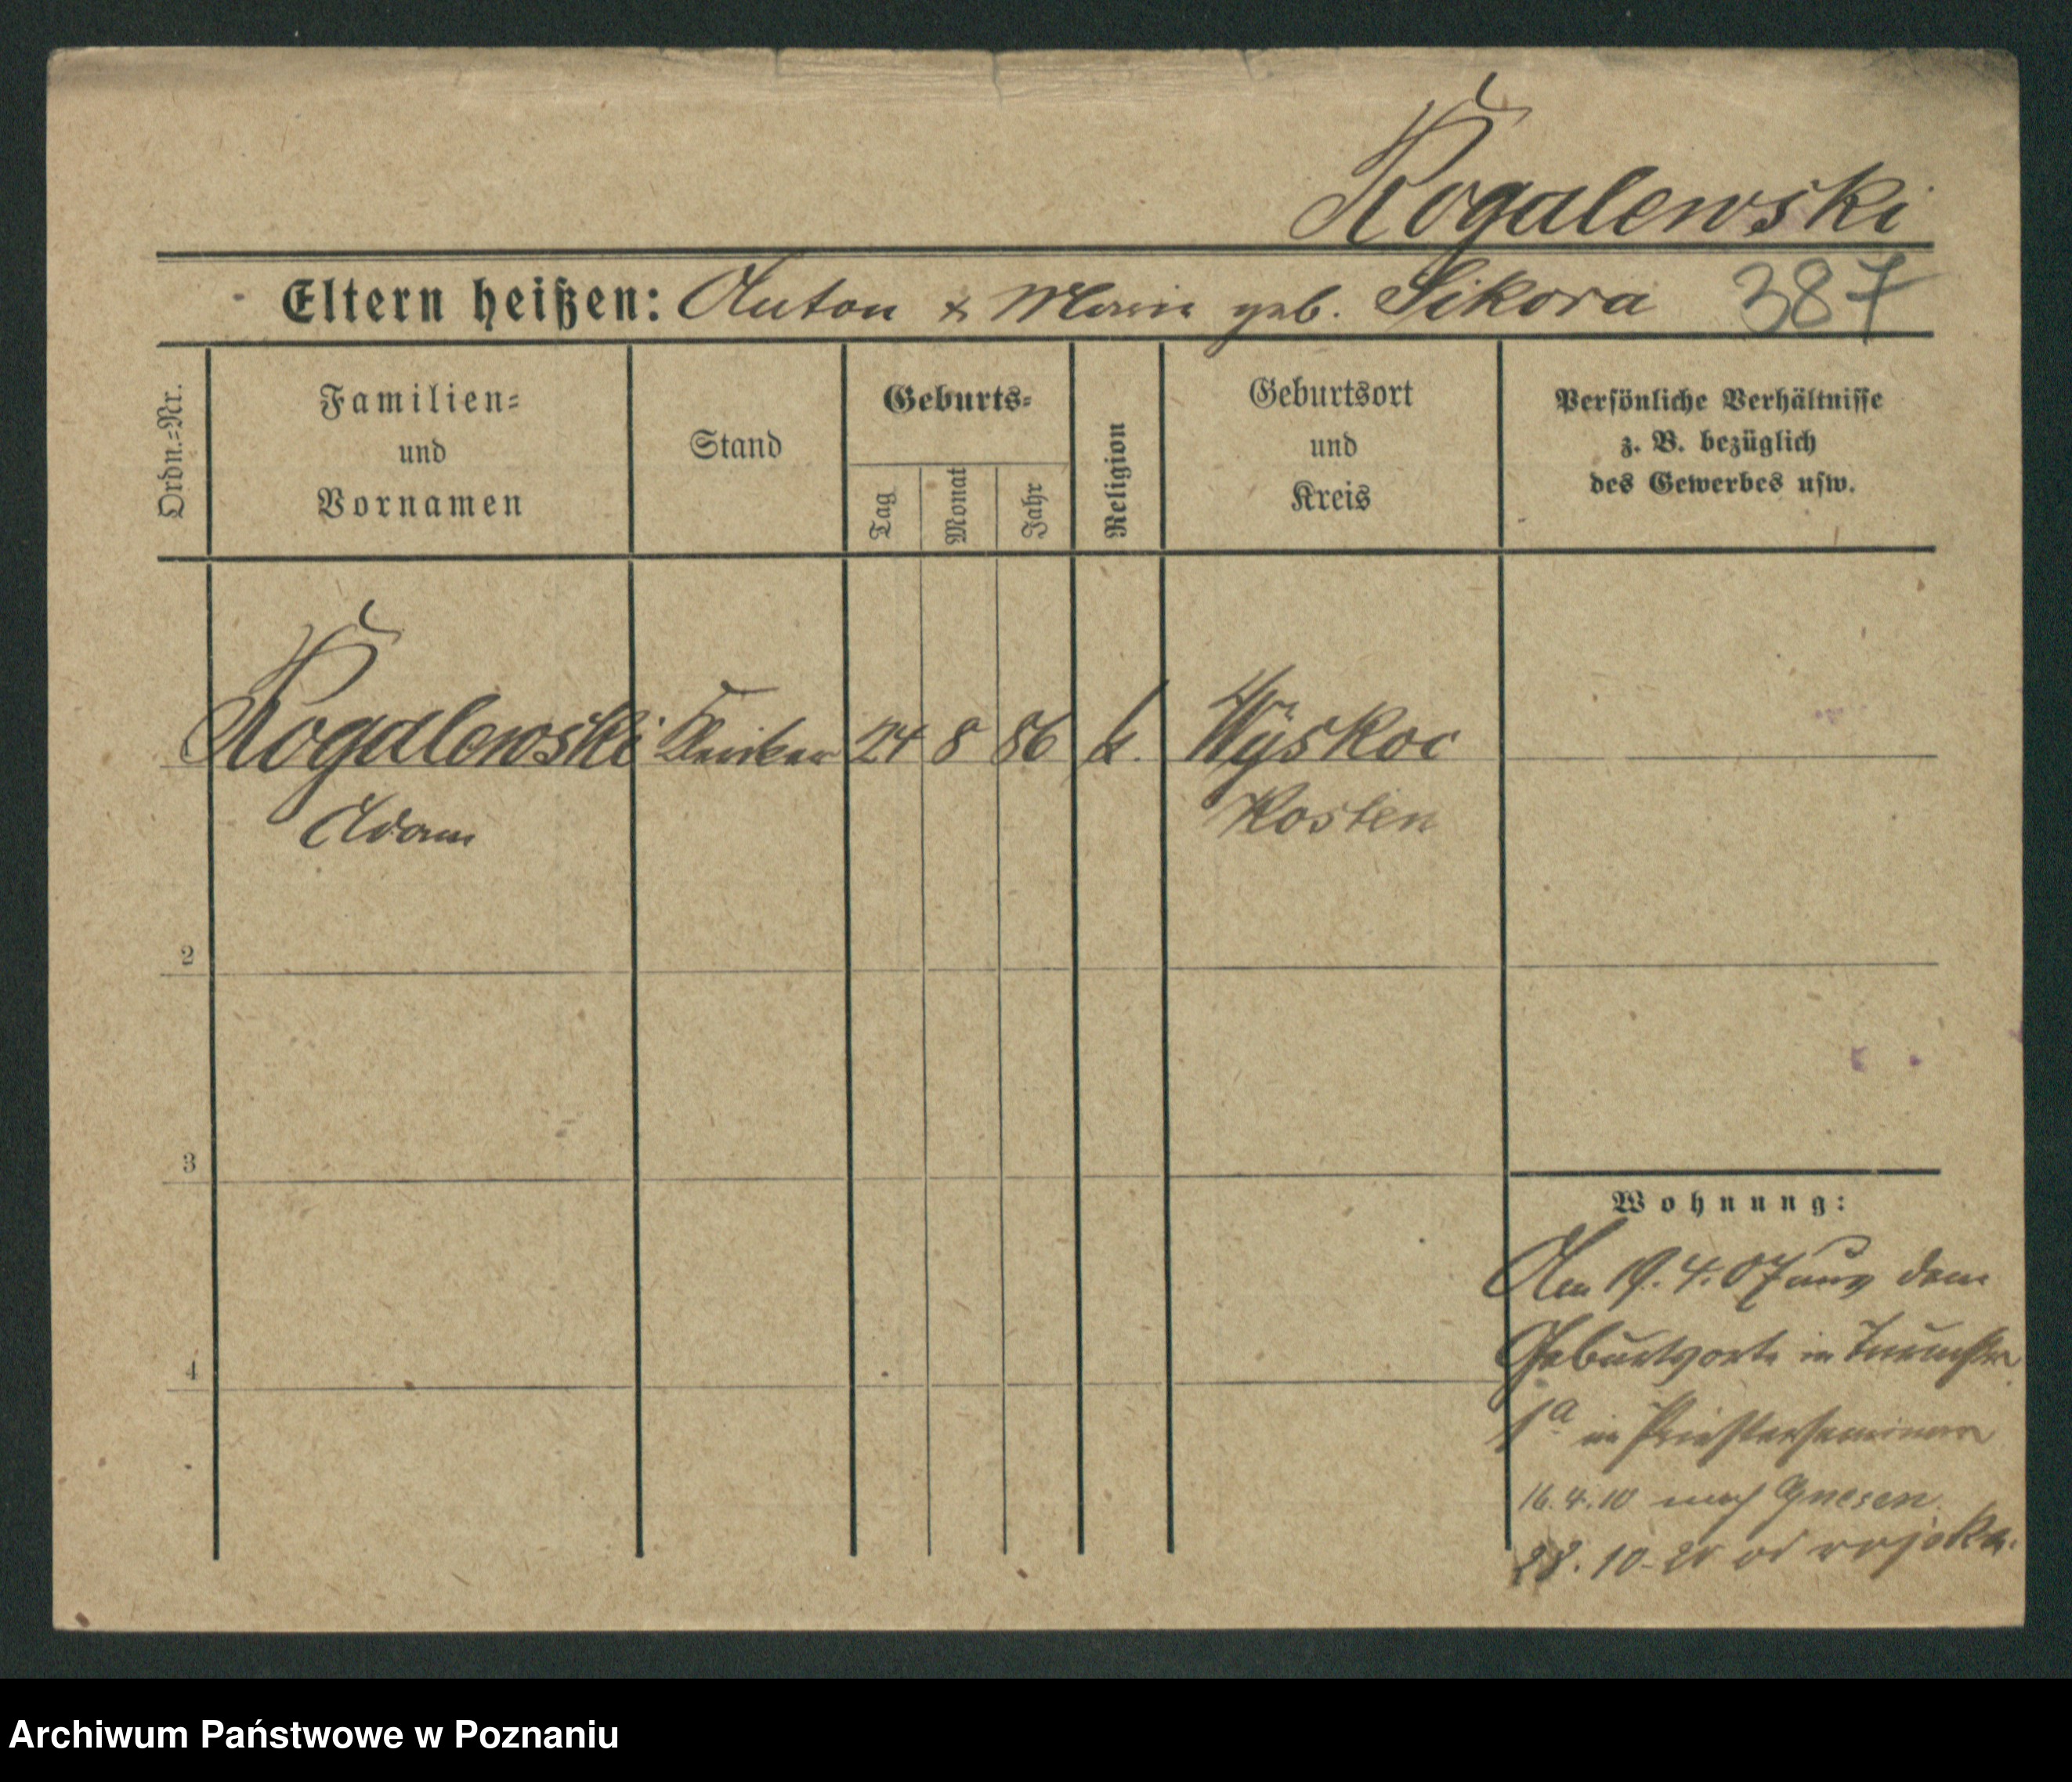 Rogalewski
Eltern heißen: Anton & Marie geb. Sikora 387
Ordn.=Nr.
Familien=
und
Vornamen
Stand
Geburts=
Tag
Monat
Jahr
Religion
Geburtsort
und
Kreis
Persönliche Verhältnisse
z. B. bezüglich
des Gewerbes usw.
Rogalewski Kleriker 24 8 86 k. Wyskoc
Adam Kosten
2
3
4
Wohnung:
Am 19.4.07 aus dem
Geburtsorte in
1a im Priesterseminar
16.4.10 nach Gnesen.
28.10-20 od
Archiwum Państwowe w Poznaniu